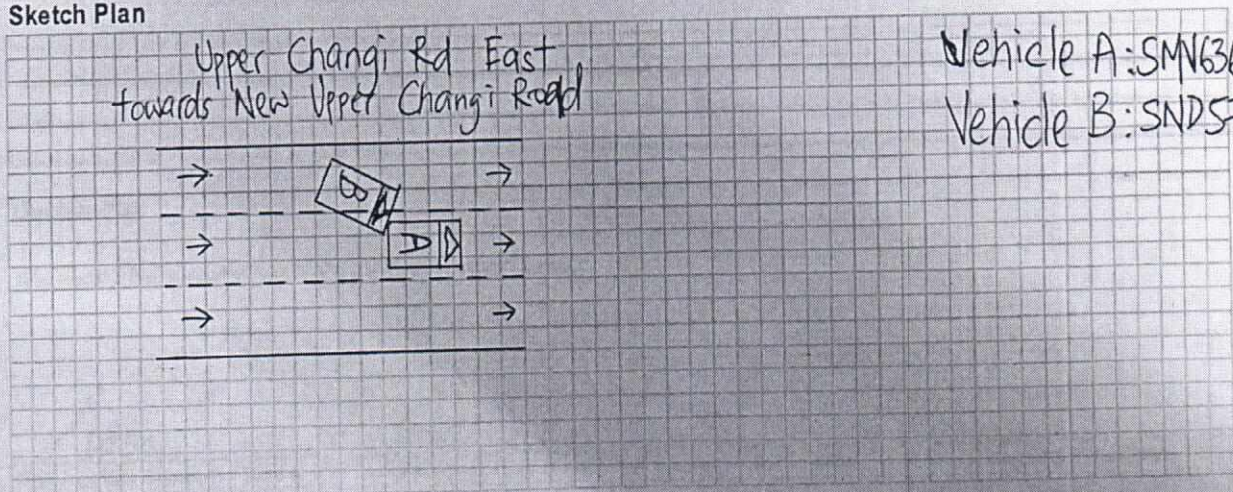 Sketch Plan
Upper Changi Rd East
towards New Upper Changi Road
Vehicle A: SMV636
Vehicle B: SND5
B
A